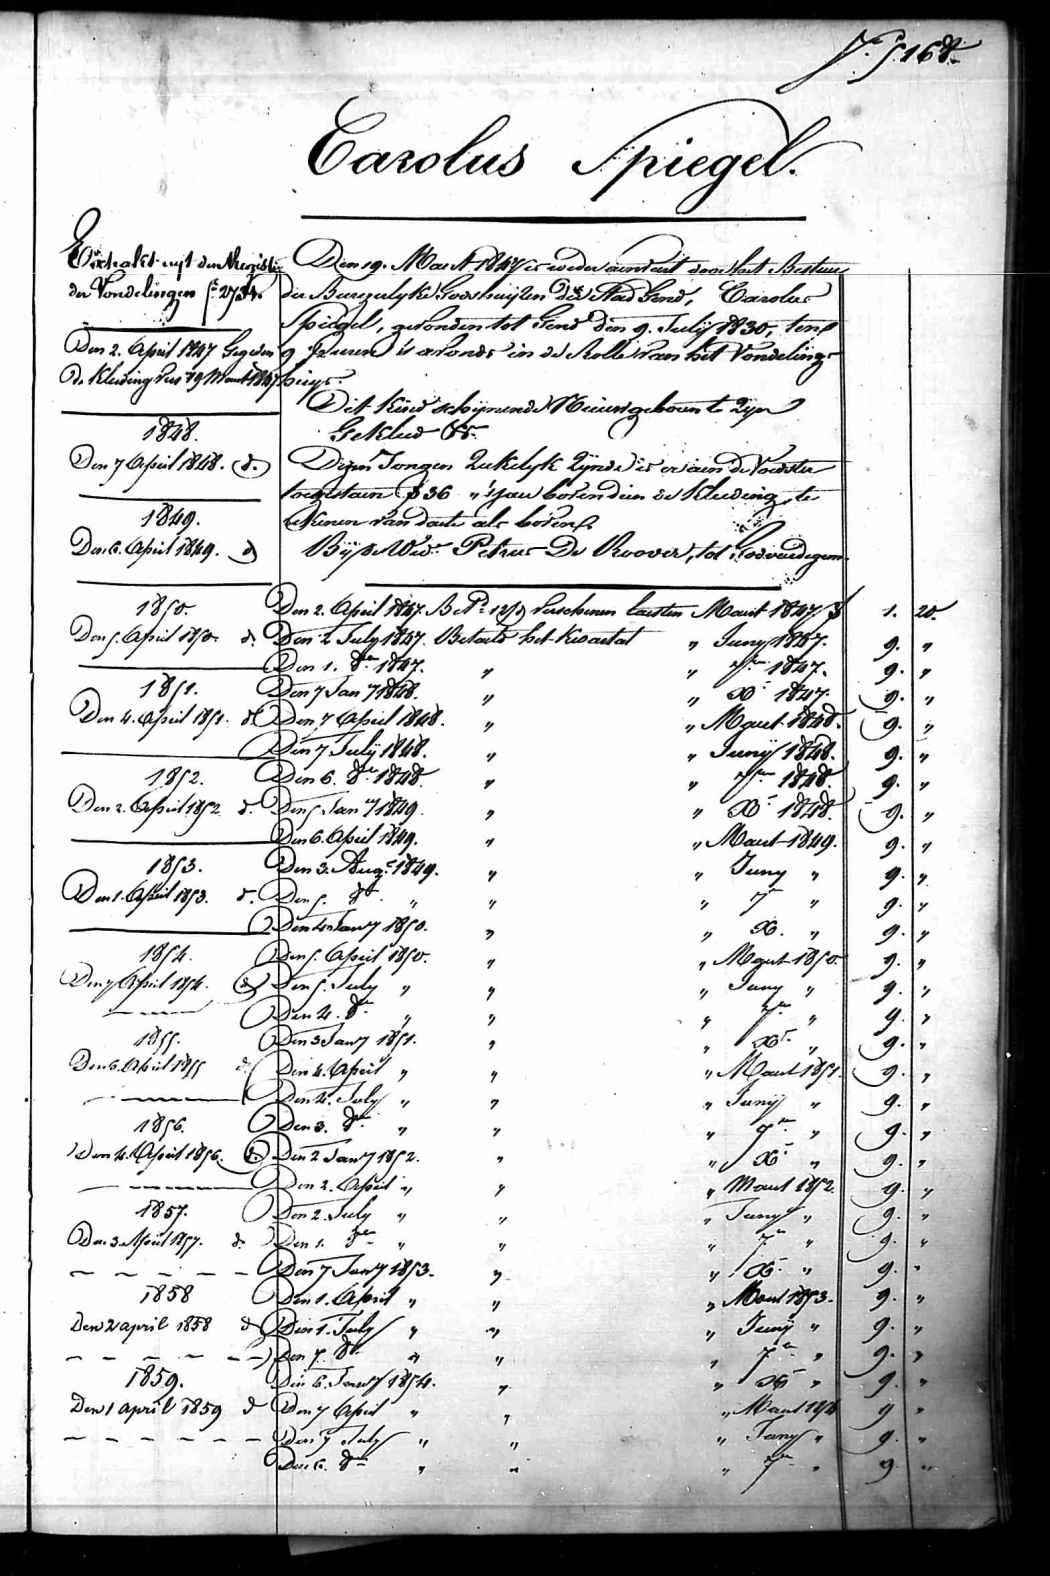 168.
Carolus Spiegel.
Extrakt uyt den Register
der Vondelingen
Den 2. April 1847 Gegeven
de Kleeding Vers 19 Maart 1847
1848.
Den 7 April 1848. d.
1849.
Den 6. April 1849. d
1850.
Den 5. April 1850. d.
1851.
Den 4. April 1851. d
1852.
Den 2. April 1852 d.
1853.
Den 1. April 1853. d.
1854.
Den 7 April 1854. d
1855.
Den 6. April 1855 d.
1856.
Den 4. April 1856. d.
1857.
Den 3. April 1857. d.
1858
Den 2 april 1858 d
1859.
Den 1 april 1859 d
Den 19. Maart 1847 is weder aenveirt door het Bestuur
der Burgerlyke Godshuijzen der Stad Gend, Carolus
Spiegel, gevonden tot Gend den 9. July 1830, ten
9 Uren 's avonds in de Rolle van het Vondeling-
huys.
Dit Kind schijnende Nieuwgeboren te Zijn
Gekleed &c.
Dezen Jongen Ziekelyk Zijnde is er aen de Voedster
toegestaen 36 "'sjaer boven dien de Kleeding, te
rekenen van date als boven.
Bij de Wed. Petrus De Roover, tot
Den 2. April 1847. verschenen laesten Maart 1847 1. 20.
Den 2 July 1847. Betaelt het Kwartael " Juny 1847. 9. "
Den 1. 8er 1847. " " 7er 1847. 9. "
Den 7 Jany 1848. " " Xr 1847. 9. "
Den 7 April 1848. " " Maert 1848. 9. "
Den 7 July 1848. " " Junij 1848. 9. "
Den 6. 8er 1848. " " 7er 1848. 9. "
Den 5 Jany 1849. " " Xr 1848. 9. "
Den 6. April 1849. " " Maert 1849. 9. "
Den 3. Augt 1849. " " Juny " 9. "
Den 5. 8r " " " 7r " 9. "
Den 4 Jany 1850. " " X. " 9. "
Den 5. April 1850. " " Maert 1850. 9. "
Den 5. July " " " Juny " 9. "
Den 4. 8er " " " 7er " 9. "
Den 3 Jany 1851. " " Xr. " 9. "
Den 4. April " " " Maert 1851. 9. "
Den 4. July " " " Junij " 9. "
Den 3. 8er " " " 7er " 9. "
Den 2 Jany 1852. " " Xr " 9. "
Den 2. April " " " Maert 1852. 9. "
Den 2. July " " " Juny " 9. "
Den 1. 8er " " " 7r " 9. "
Den 7 Jany 1853. " " Xr " 9. "
Den 1. April " " " Maert 1853. 9. "
Den 1. July " " " Junij " 9. "
Den 7. 8r " " " 7r " 9. "
Den 6. Jany 1854. " " Xr " 9. "
Den 7 April " " " Maert 1854 9 "
Den 7 July " " " Juny " 9. "
Den 6. 8er " " " 7er " 9 "